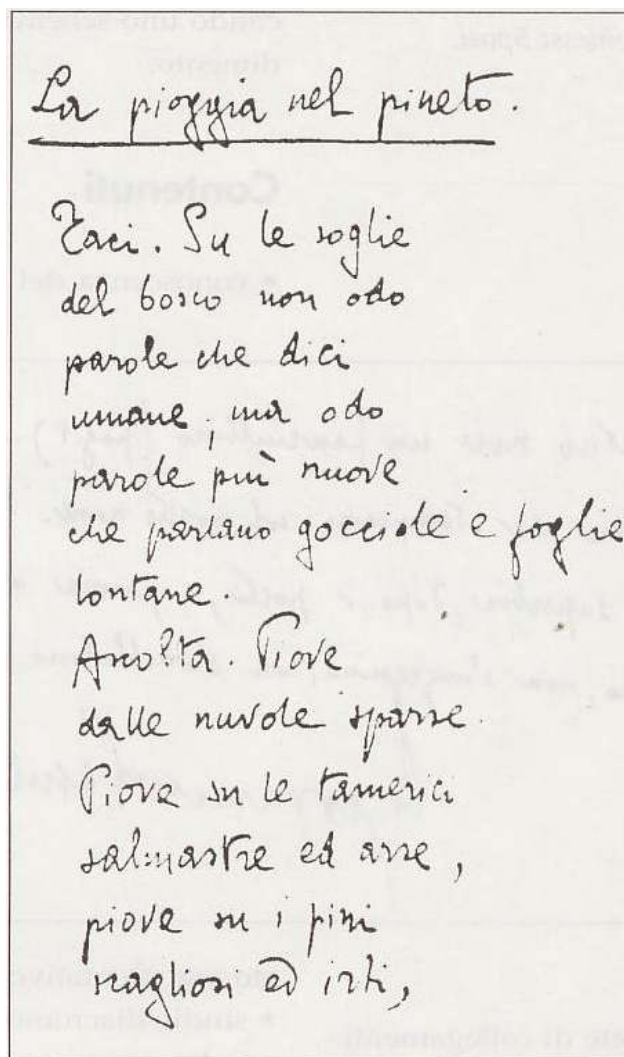 La pioggia nel pineto.
Taci. Su le soglie
del bosco non odo
parole che dici
umane, ma odo
parole più nuove
che parlano gocciole e foglie
lontane.
Ascolta. Piove
dalle nuvole sparse.
Piove su le tamerici
salmastre ed arse,
piove su i pini
scagliosi ed irti,